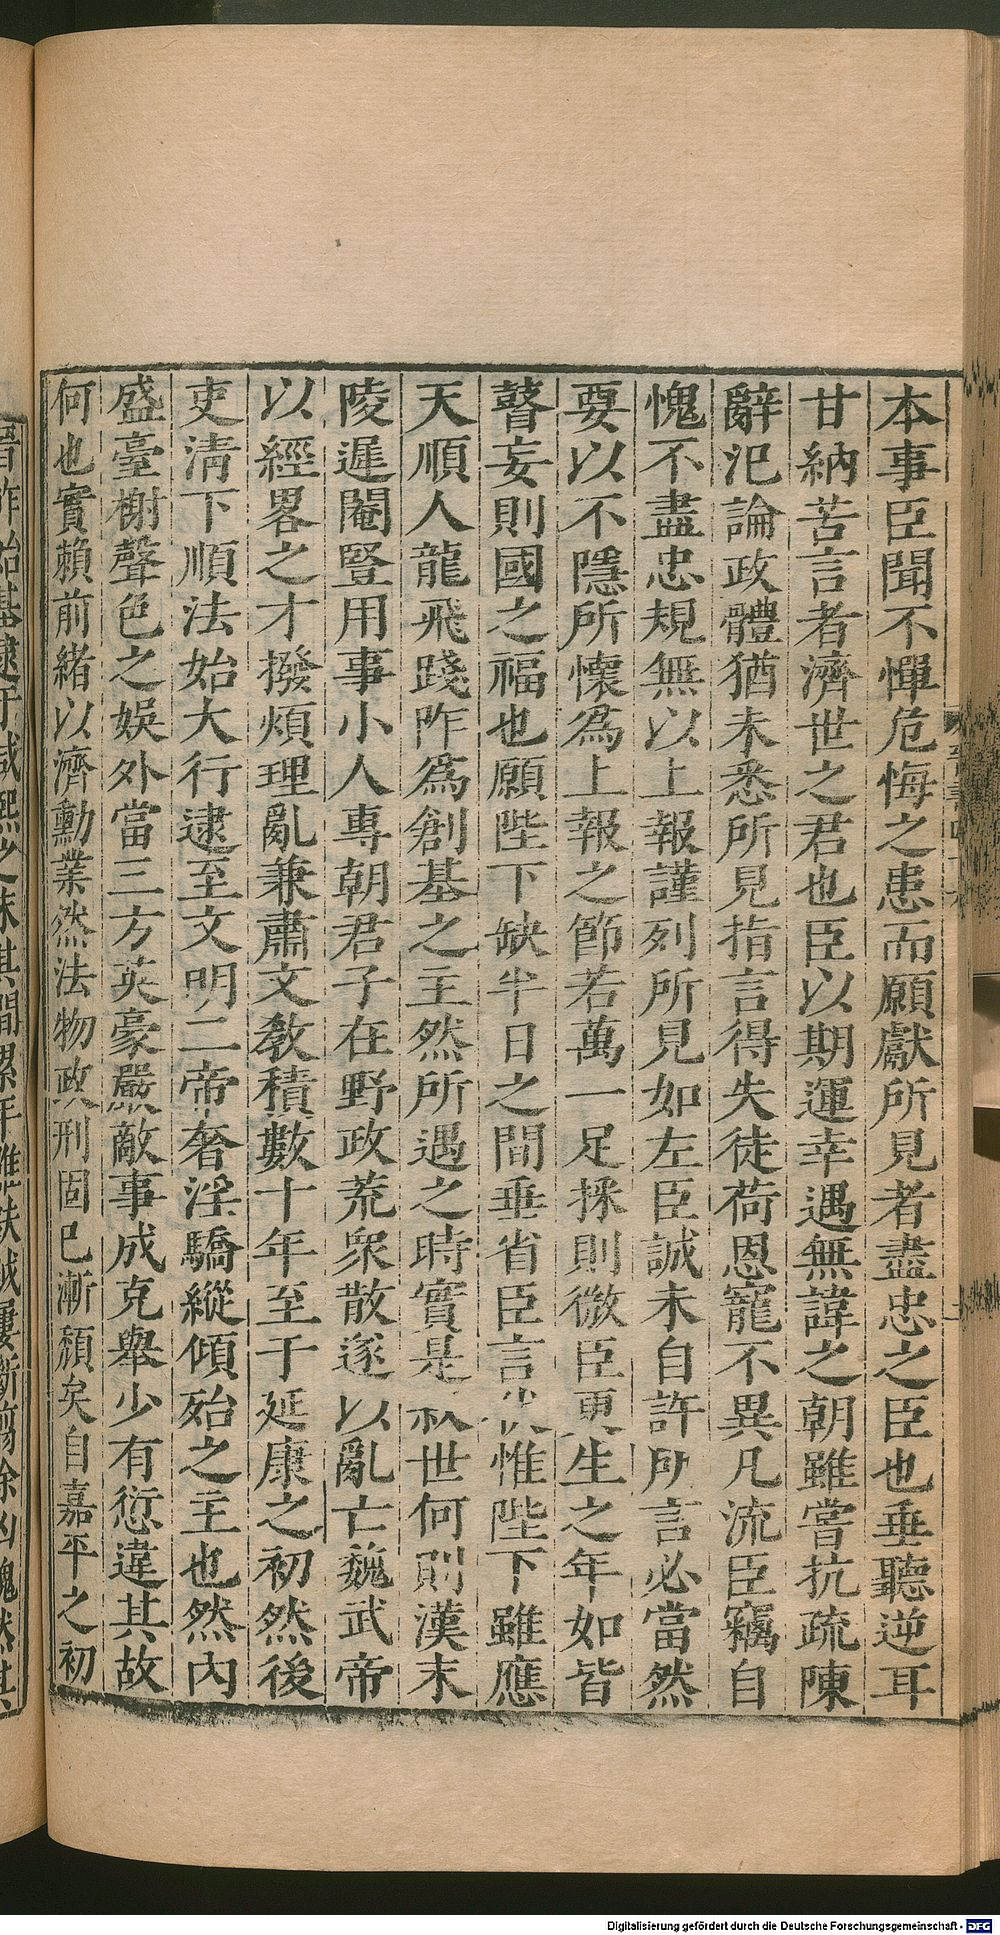 本事臣聞不憚危悔之患而願獻所見者盡忠之臣也垂聽逆耳
甘納苦言者濟世之君也臣以期運幸遇無諱之朝雖嘗抗疏陳
辭汜論政體猶未悉所見指言得失徒荷恩寵不異凡流臣竊自
愧不盡忠規無以上報謹列所見如左臣誠未自許所言必當然
要以不隱所懷爲上報之節若萬一足採則微臣更生之年如皆
瞽妄則國之福也願陛下缺半日之間垂省臣言伏惟陛下雖應
天順人龍飛踐阼爲創基之主然所遇之時實是叔世何則漢末
陵遲閹豎用事小人專朝君子在野政荒衆散遂以亂亡魏武帝
以經畧之才撥煩理亂兼肅文敎積數十年至于延康之初然後
吏淸下順法始大行逮至文明二帝奢淫驕縱傾殆之主也然內
盛臺榭聲色之娛外當三方英豪嚴敵事成克舉少有愆違其故
何也實賴前緖以濟勳業然法物政刑固已漸頹矣自嘉平之初
Digitalisierung gefördert durch die Deutsche Forschungsgemeinschaft - DFG